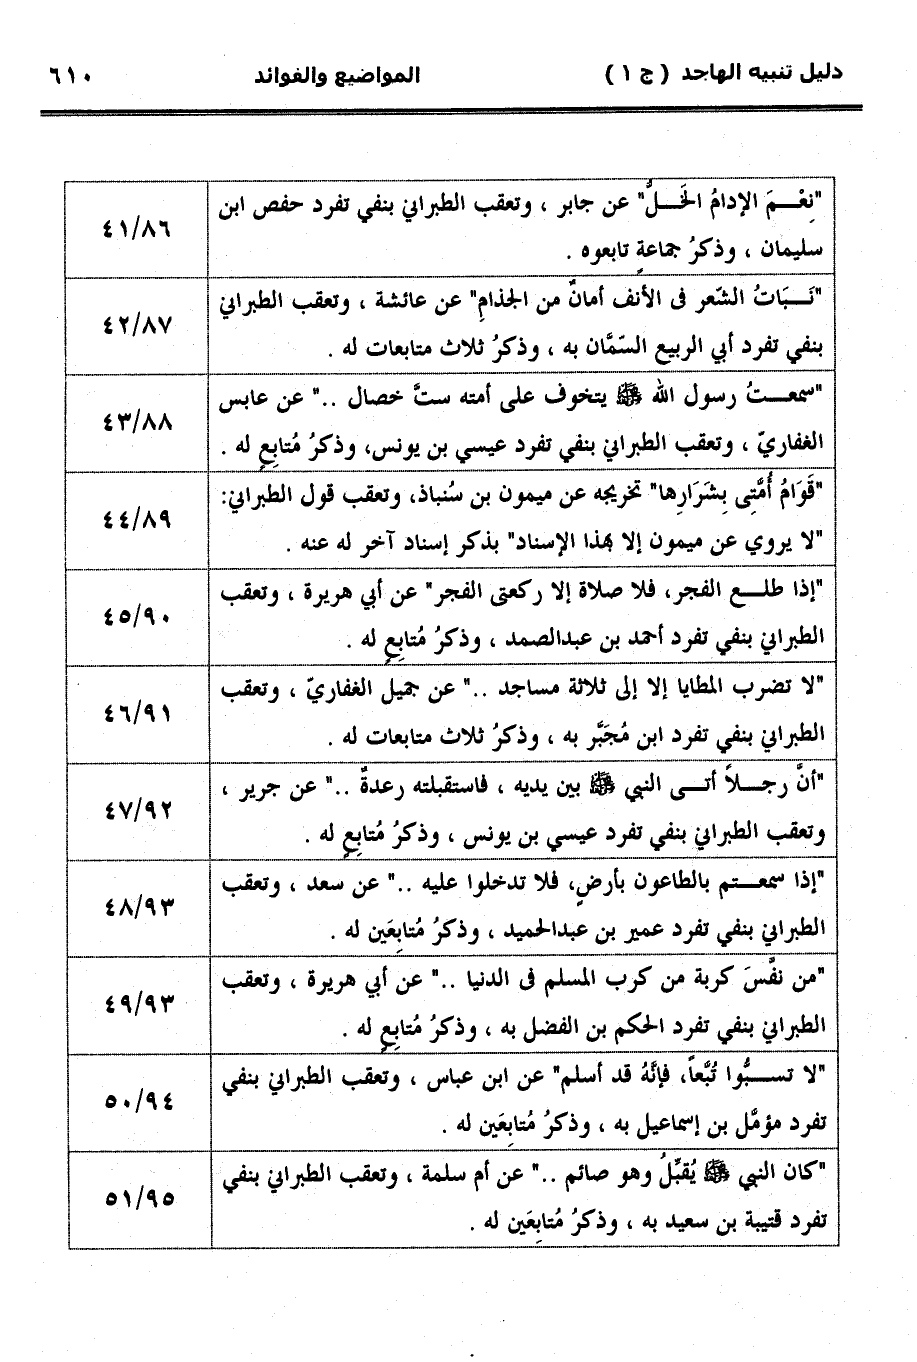 دليل تنبيه الهاجد ( ج ١ ) المواضيع والفوائد ٦١٠
"نِعْـــمَ الإدامُ الخَـــلُّ" عن جابر ، وتعقب الطبراني بنفي تفرد حفص ابن
سليمان ، وذكرُ جماعةٍ تابعوه .
٤١/٨٦
"نَـــبَاتُ الشّعر فى الأنف أمانٌ من الجذامِ" عن عائشة ، وتعقب الطبراني
بنفي تفرد أبي الربيع السّمَّان به ، وذكرُ ثلاث متابعات له .
٤٢/٨٧
"سمعـــتُ رسول الله ﷺ يتخوف على أمته ستَّ خصال .." عن عابس
الغفاريّ ، وتعقب الطبراني بنفي تفرد عيسي بن يونس، وذكرُ مُتابِعٍ له .
٤٣/٨٨
"قَوَامُ أُمَّتِى بِشَرَارِها" تخريجه عن ميمون بن سُنباذ، وتعقب قول الطبراني:
"لا يروي عن ميمون إلا بهذا الإسناد" بذكر إسناد آخر له عنه .
٤٤/٨٩
"إذا طلـــع الفجر، فلا صلاة إلا ركعتى الفجر" عن أبي هريرة ، وتعقب
الطبراني بنفي تفرد أحمد بن عبدالصمد ، وذكرُ مُتابِعٍ له .
٤٥/٩٠
"لا تضرب المطايا إلا إلى ثلاثة مساجد .." عن جميل الغفاريّ ، وتعقب
الطبراني بنفي تفرد ابن مُجَبَّر به ، وذكرُ ثلاث متابعات له .
٤٦/٩١
"أنَّ رجـــلاً أتـــى النبي ﷺ بين يديه ، فاستقبلته رعدةٌ .." عن جرير ،
وتعقب الطبراني بنفي تفرد عيسي بن يونس ، وذكرُ مُتابِعٍ له .
٤٧/٩٢
"إذا سمعـــتم بالطاعون بأرضٍ، فلا تدخلوا عليه .." عن سعد ، وتعقب
الطبراني بنفي تفرد عمير بن عبدالحميد ، وذكرُ مُتابِعَين له .
٤٨/٩٣
"من نفَّسَ كربة من كرب المسلم فى الدنيا .." عن أبي هريرة ، وتعقب
الطبراني بنفي تفرد الحكم بن الفضل به ، وذكرُ مُتابِعٍ له .
٤٩/٩٣
"لا تســـبُّوا تُبَّعاً، فإنَّهُ قد أسلم" عن ابن عباس ، وتعقب الطبراني بنفي
تفرد مؤمَّل بن إسماعيل به ، وذكرُ مُتابِعَين له .
٥٠/٩٤
"كان النبي ﷺ يُقبِّلُ وهو صائم .." عن أم سلمة ، وتعقب الطبراني بنفي
تفرد قتيبة بن سعيد به ، وذكرُ مُتابِعَين له .
٥١/٩٥